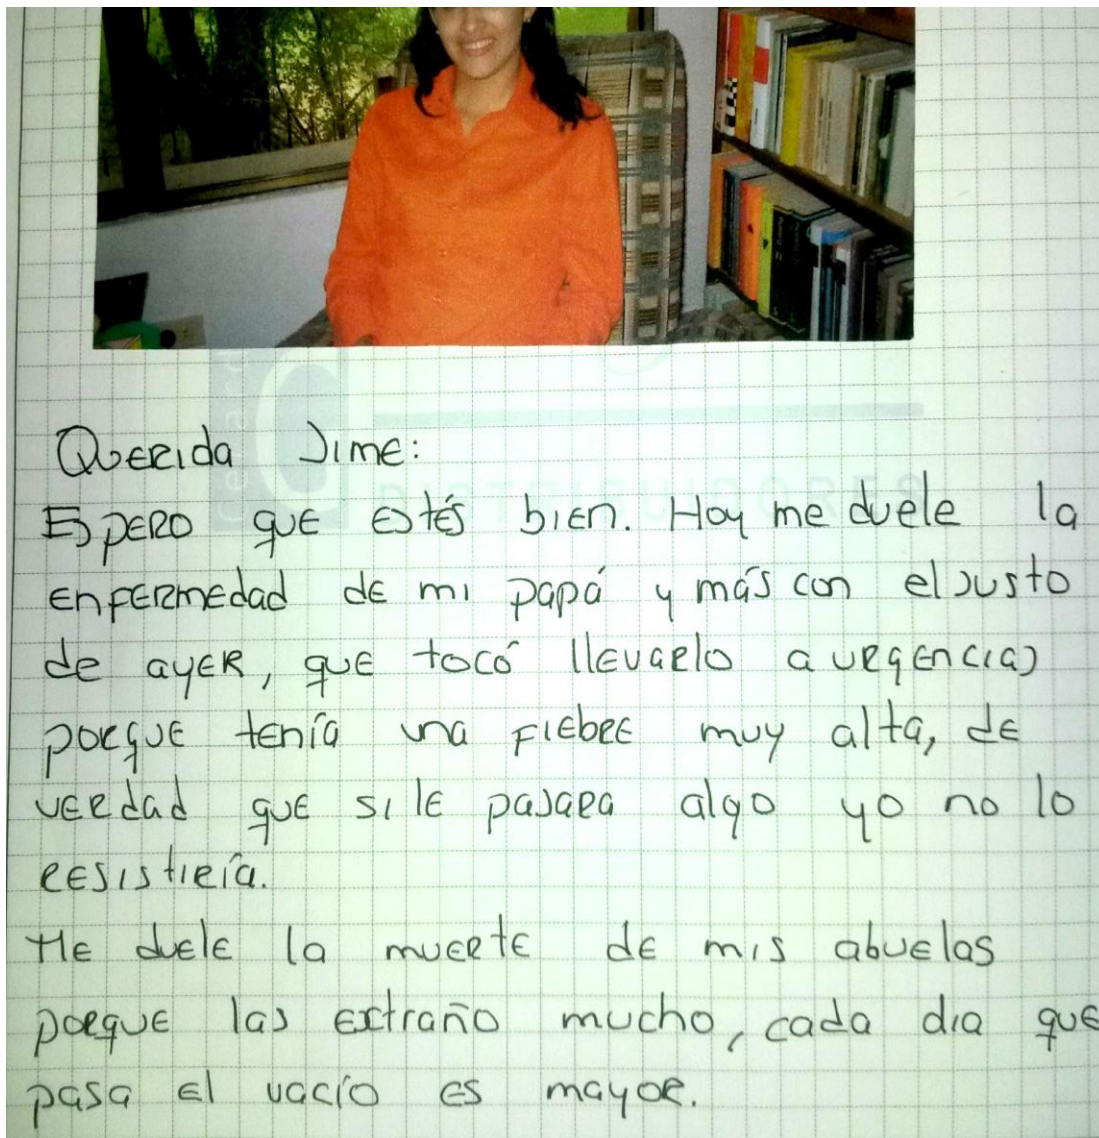 Querida Jime:
Espero que estés bien. Hoy me duele la
enfermedad de mi papá y más con el susto
de ayer, que tocó llevarlo a urgencias
porque tenía una fiebre muy alta, de
verdad que si le pasara algo yo no lo
resistiría.
Me duele la muerte de mis abuelas
porque las extraño mucho, cada dia que
pasa el vacío es mayor.
DISTRIBUIDORES